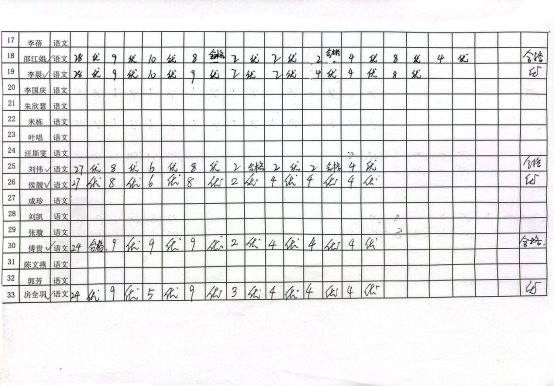 17 李蓓 语文
18 邵江娟✓ 语文 28 优 9 优 10 优 8 合格 2 优 2 优 2 合格 4 优 8 优 4 优 合格
19 李晨✓ 语文 28 优 9 优 10 优 9 优 2 优 2 优 4 优 4 优 8 优 优
20 李国庆 语文
21 朱欣慧 语文
22 米栋 语文
23 叶唱 语文
24 汪斯雯 语文
25 刘伟✓ 语文 27 优 8 优 6 优 8 优 2 合格 2 优 2 合格 4 优 合格
26 侯靓✓ 语文 27 优 8 优 6 优 8 优 2 优 4 优 4 优 4 优 优
27 成珍 语文
28 刘凯 语文
29 张璇 语文
30 傅贵✓ 语文 24 合格 9 优 9 优 9 优 2 优 4 优 4 优 4 优 合格
31 陈文燕 语文
32 郭芳 语文
33 房全羽✓ 语文 24 优 9 优 5 优 9 优 3 优 4 优 4 优 4 优 优